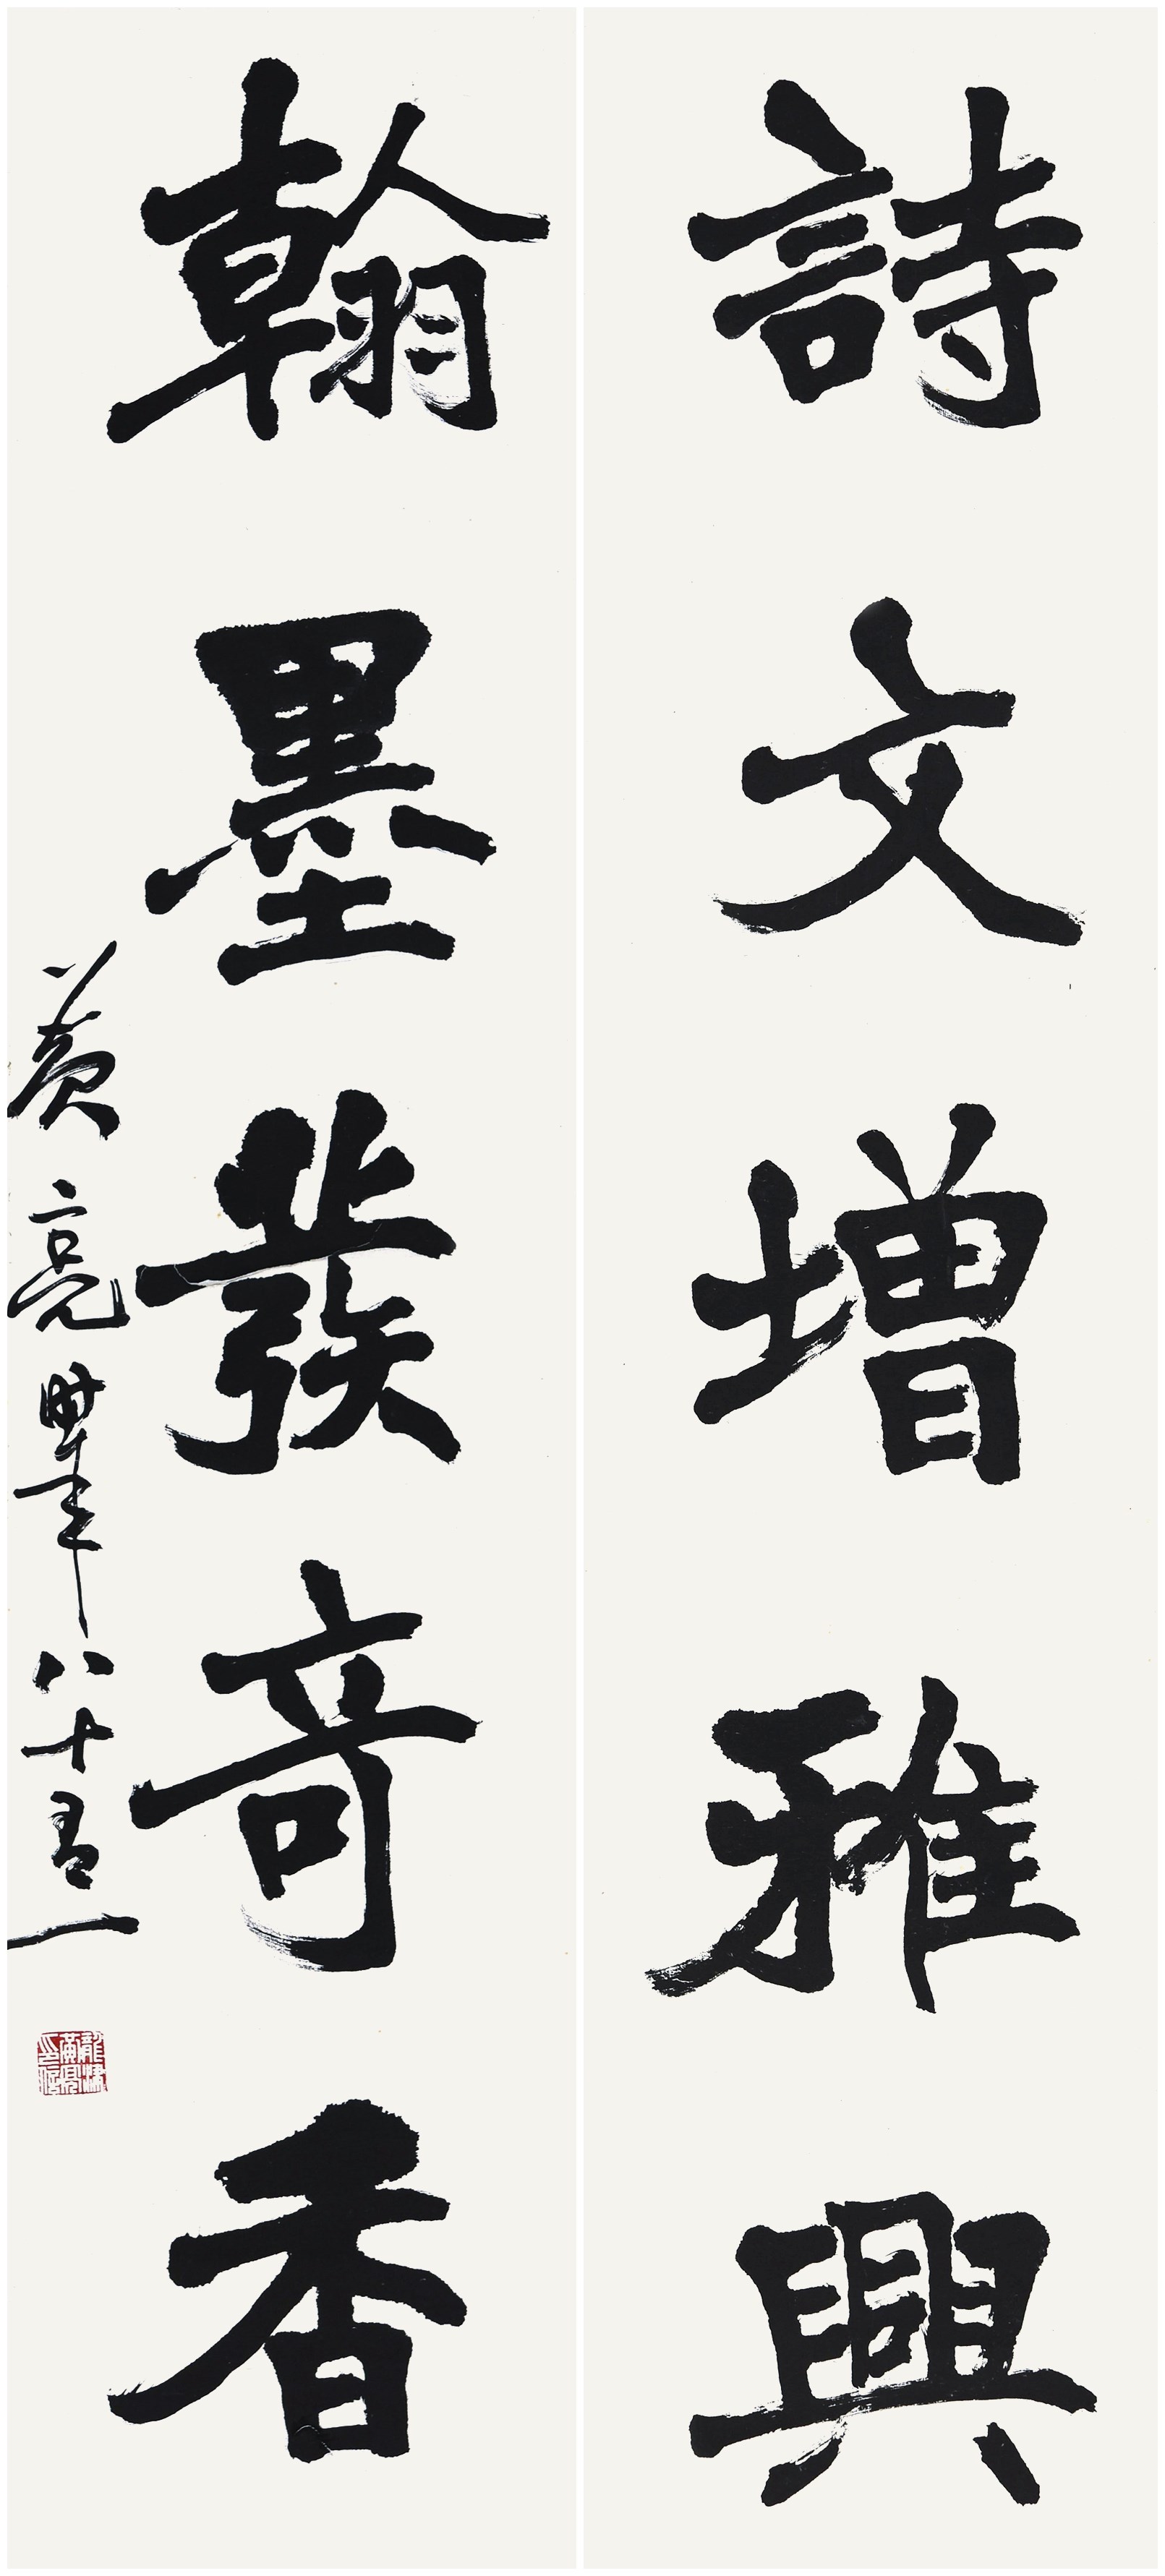 詩文增雅興
翰墨發奇香
黃亮時年八十有一